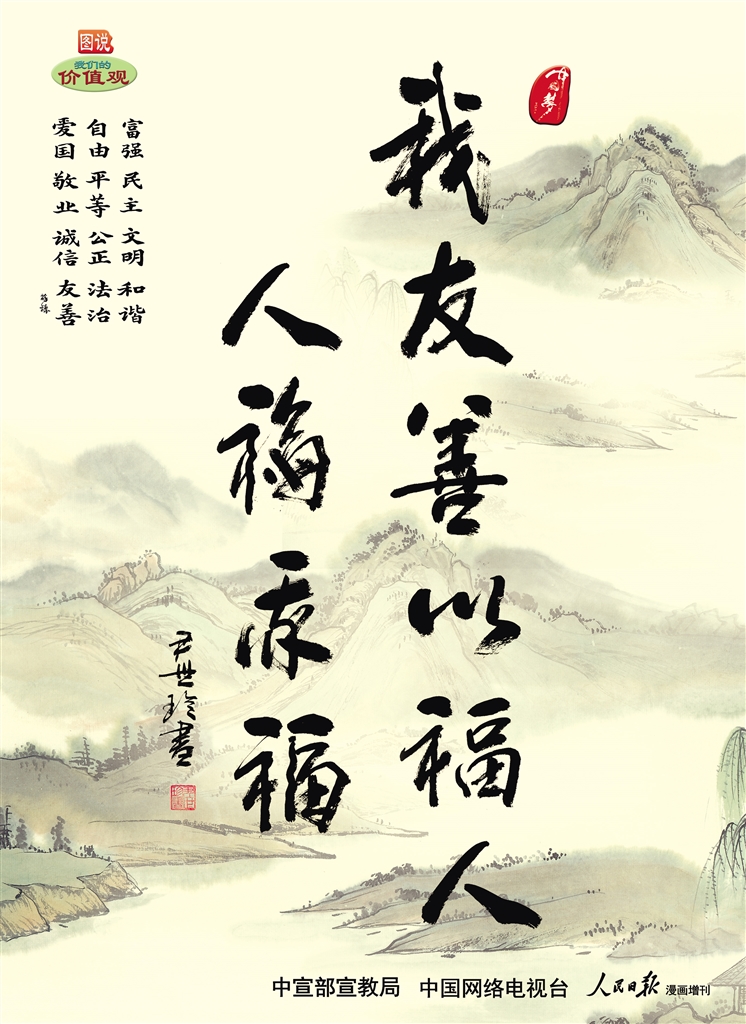 图说
我们的
价值观
中国梦
富强 民主 文明 和谐
自由 平等 公正 法治
爱国 敬业 诚信 友善
我友善以福人
人福亦福
尹世書
中宣部宣教局 中国网络电视台 人民日报 漫画增刊